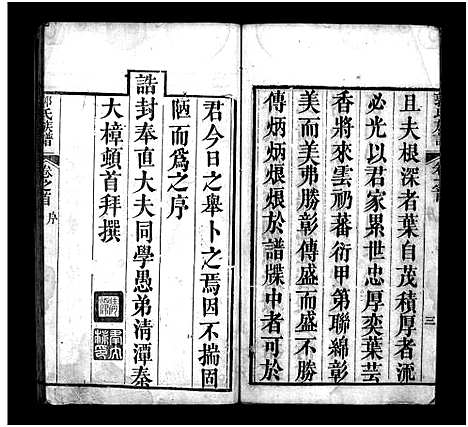 且夫根深者葉自茂積厚者流
必光以君家累世忠厚奕葉芸
香將來雲礽蕃衍甲第聯綿彰
美而美弗勝彰傳盛而盛不勝
傳炳炳烺烺於譜牒中者可於
三
君今日之舉卜之焉因不揣固
陋而爲之序
誥封奉直大夫同學愚弟清潭秦
大樟頓首拜撰
郭氏族譜
卷之首
序